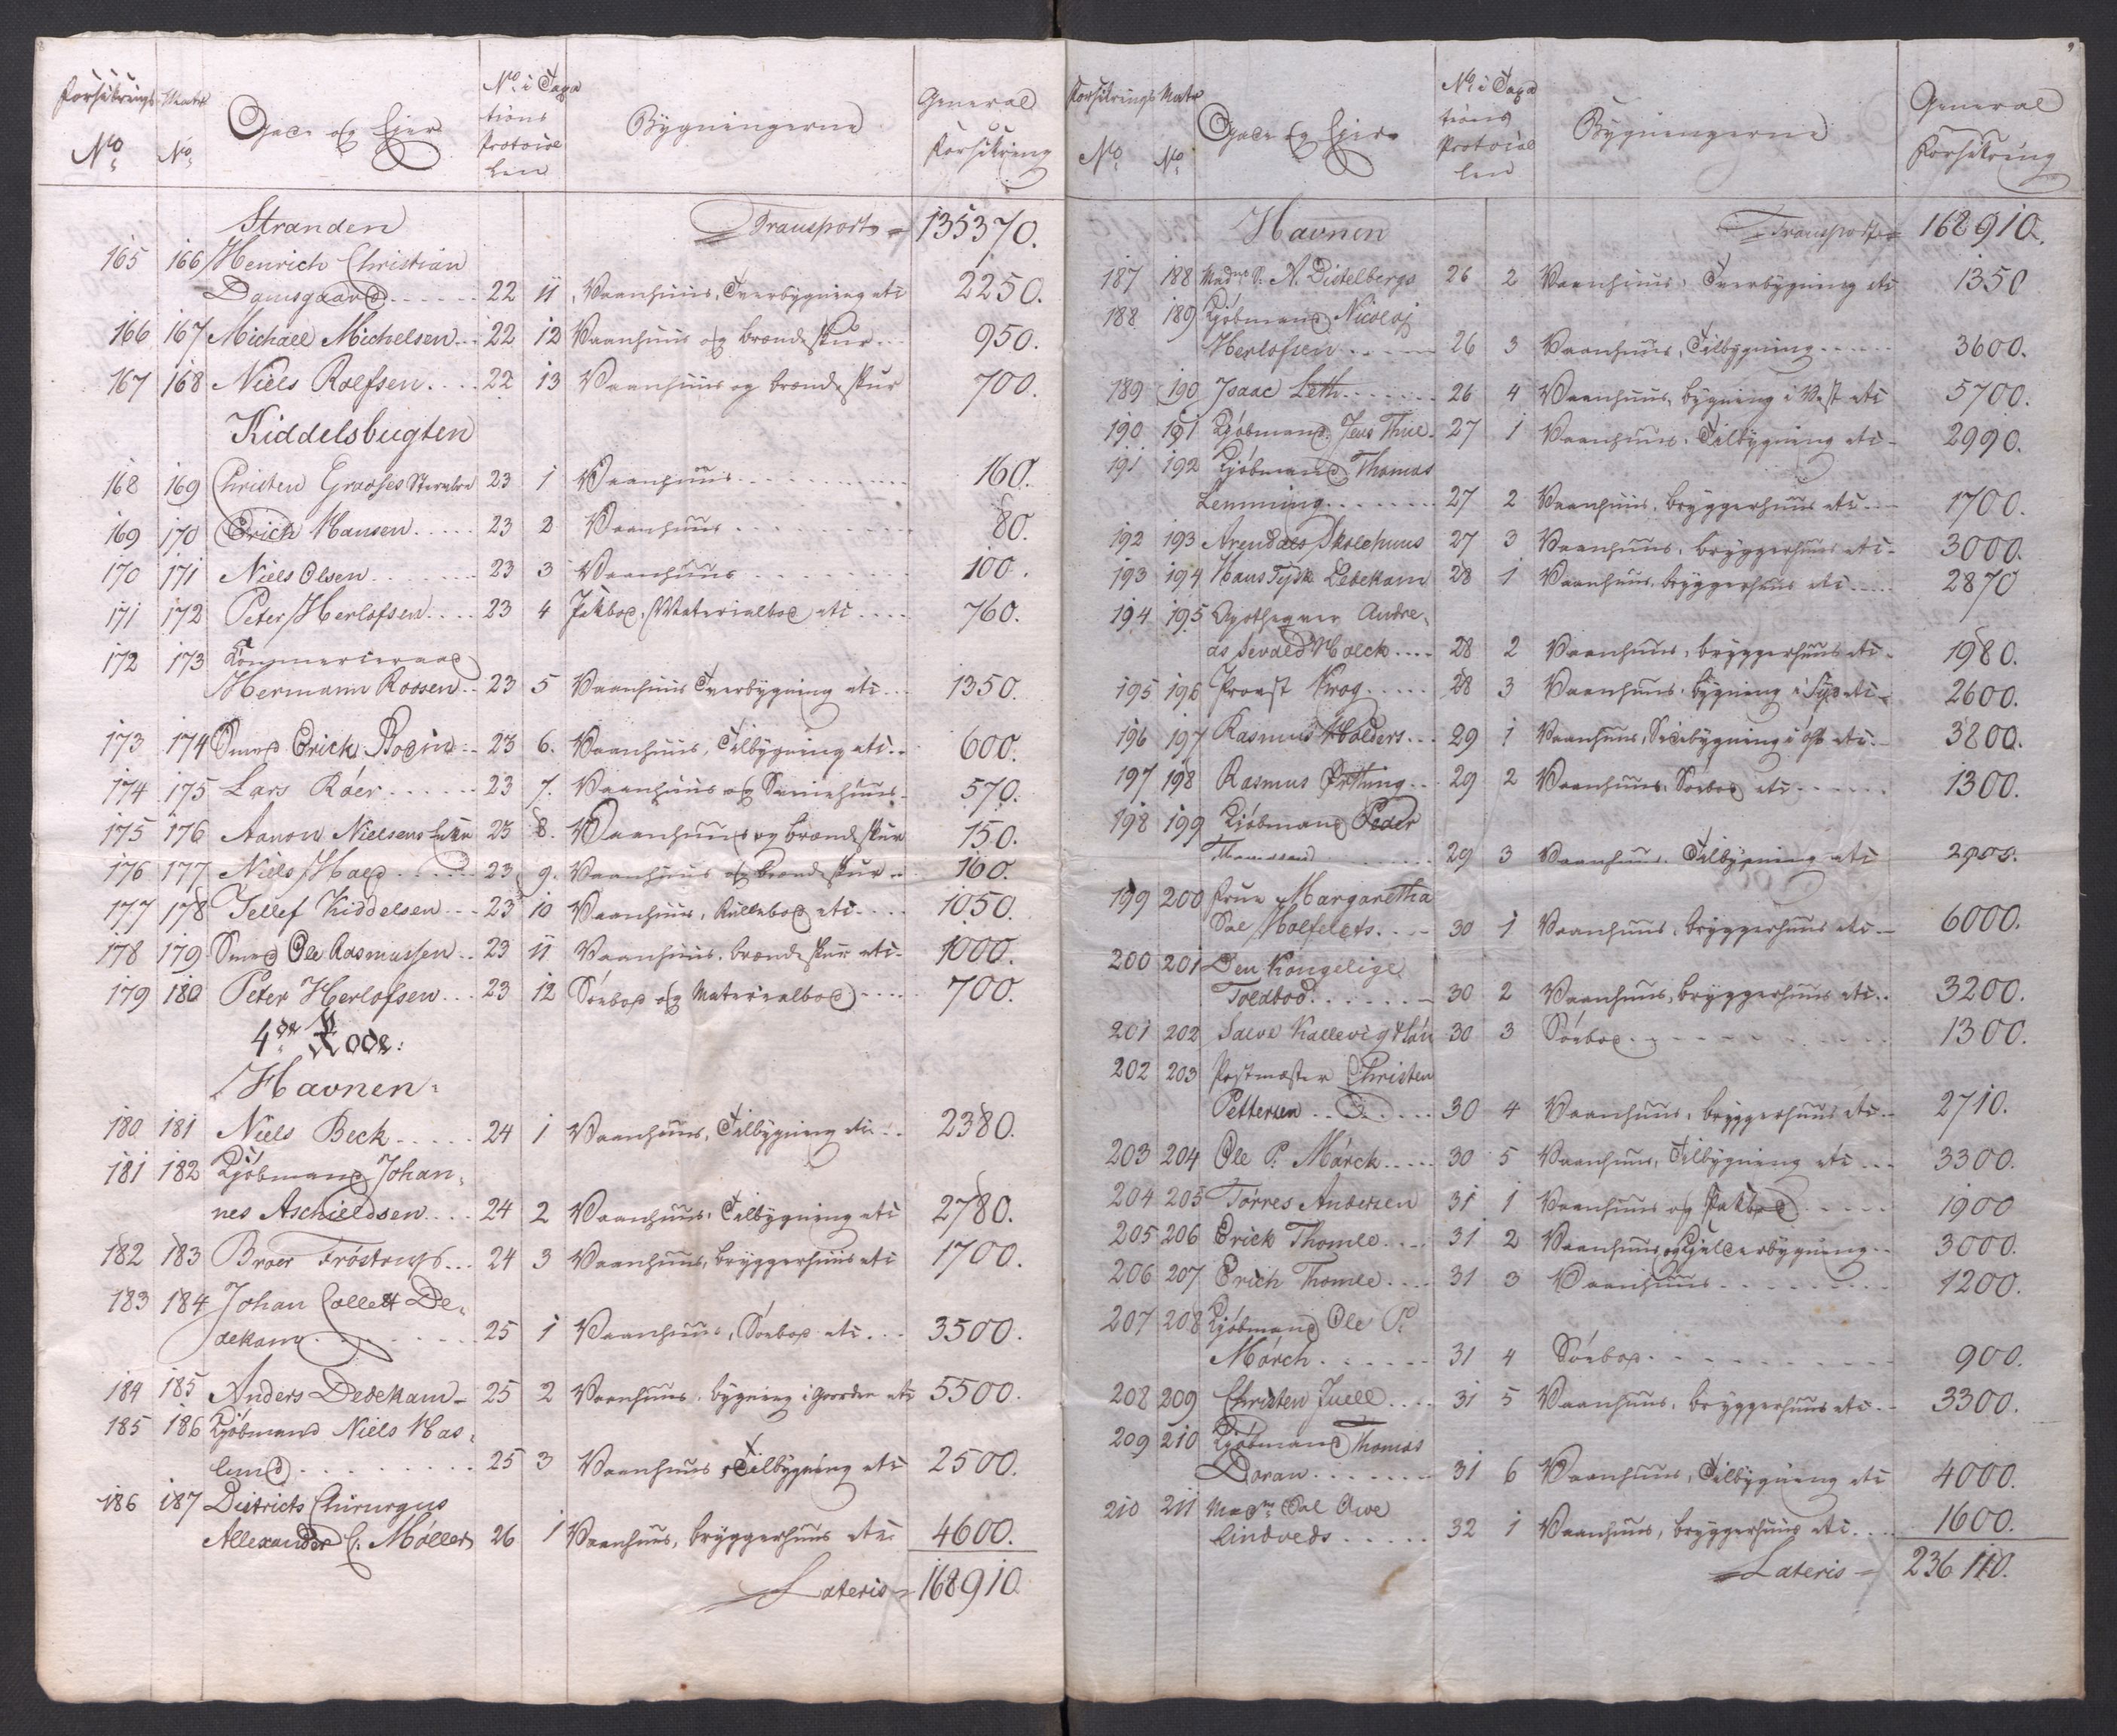 Forsikrings No. Matr No. Gade og Ejer No. i Taxationsprotocollen Bygningerne General Forsikring
Stranden Transport 135370.
165 166 Henrich Christian
Damsgaard 22 11 Vaanhuus, Tverbygning etc 2250.
166 167 Michael Michelsen 22 12 Vaanhuus og brændeskuur 950.
167 168 Niels Roelfsen 22 13 Vaanhuus og brændeskur 700.
Kiddelsbugten
168 169 Christen Graafses 23 1 Vaanhuus 160.
169 170 Erich Hansen 23 2 Vaanhuus 80.
170 171 Niels Olsen 23 3 Vaanhuus 100.
171 172 Peter Herlofsen 23 4 Pakbod, Materialbod etc 760.
172 173 Commerceraad
Hermann Roosen 23 5 Vaanhuus Tverbygning etc 1350.
173 174 Smed Erick Bocin 23 6. Vaanhuus, Tilbygning etc 600.
174 175 Lars Röer 23 7. Vaanhuus og Svinehuus 570.
175 176 Aanon Nielsens Enke 23 8. Vaanhuus og brændeskur 150.
176 177 Niels Hald 23 9. Vaanhuus og brændeskur 160.
177 178 Tellef Kiddelsen 23 10 Vaanhuus, Rullebod etc 1050.
178 179 Smed Ole Rasmussen 23 11 Vaanhuus, brændeskur etc 1000.
179 180 Peter Herlofsen 23 12 Söebod og Materialbod 700.
4de Rode:
Havnen:
180 181 Niels Beck 24 1 Vaanhuus, Tilbygning etc 2380.
181 182 Kjöbmand Johan-
nes Aschieldsen 24 2 Vaanhuus, Tilbygning etc 2780.
182 183 Broer Fröstrup 24 3 Vaanhuus, bryggerhuus etc 1700.
183 184 Johan Collett De-
dekam 25 1 Vaanhuus, Söebod etc 3500.
184 185 Anders Dedekam 25 2 Vaanhuus, bygning i Gaarden etc 5500.
185 186 Kjöbmand Niels Has-
lund 25 3 Vaanhuus, Tilbygning etc 2500.
186 187 Districts Chirurgus
Allexander C. Möller 26 1 Vaanhuus, bryggerhuus etc 4600.
Lateris 168910.
Forsikrings No. Matr No. Gade og Ejere No. i Taxationsprotocollen Bygningerne General Forsikring
Havnen Transport 168910.
187 188 Mad. S. N. Distelbergs 26 2 Vaanhuus, Tverbygning etc 1350
188 189 Kjöbmand Nicolaj
Herlofsen 26 3 Vaanhuus, Tilbygning 3600.
189 190 Isaac Leth 26 4 Vaanhuus, bygning i Vest etc 5700.
190 191 Kjöbmand Jens Thue 27 1 Vaanhuus, Tilbygning etc 2990.
191 192 Kjöbmand Thomas
Lemming 27 2 Vaanhuus, bryggerhuus etc 1700.
192 193 Arendals Skolehuus 27 3 Vaanhuus, bryggerhuus etc 3000.
193 194 Hans Tysk Dedekam 28 1 Vaanhuus, bryggerhuus etc 2870
194 195 Apotheqver Andre-
as Sevald Holck 28 2 Vaanhuus, bryggerhuus etc 1980.
195 196 Provst Krog 28 3 Vaanhuus, bygning i Syd etc 2600.
196 197 Rasmus Holders 29 1 Vaanhuus, Sidebygning i öst etc 3800.
197 198 Rasmus Örtting 29 2 Vaanhuus, Söebod etc 1300.
198 199 Kjöbmand Peder
Thomassen 29 3 Vaanhuus, Tilbygning etc
199 200 Frue Margaretha
Sal Holfeldts 30 1 Vaanhuus, bryggerhuus etc 6000.
200 201 Den Kongelige
Toldbod 30 2 Vaanhuus, bryggerhuus etc 3200.
201 202 Salve Kallevig & Sön 30 3 Söebod 1300.
202 203 Postmester Christen
Pettersen 30 4 Vaanhuus, bryggerhuus etc 2710.
203 204 Ole P. Mörch 30 5 Vaanhuus, Tilbygning etc 3300.
204 205 Torres Andersen 31 1 Vaanhuus og Pakbod 1900
205 206 Erick Thomle 31 2 Vaanhuus og Kjelderbygning 3000.
206 207 Erich Thomle 31 3 Vaanhuus 1200.
207 208 Kjöbmand Ole P.
Mörch 31 4 Söebod 900.
208 209 Christen Juell 31 5 Vaanhuus, bryggerhuus etc 3300.
209 210 Kjöbmand Thomas
Doran 31 6 Vaanhuus, Tilbygning etc 4000.
210 211 Madme Sal Awe
Lindveds 32 1 Vaanhuus, bryggerhuus etc 1600.
Lateris 236110.